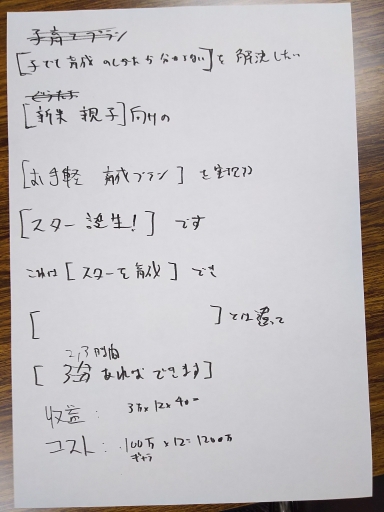 子育てプラン
[子ども育成 のしかた 分からない]を 解決したい
[新米 親子]向けの
[お手軽 育成プラン] を
[スター誕生!] です
これは [スターを育成] でき
[ ]とは違って
2,3時間
[ 3分 あれば できます]
収益: 3万×12×40=
コスト: 100万×12=1200万
ギャラ